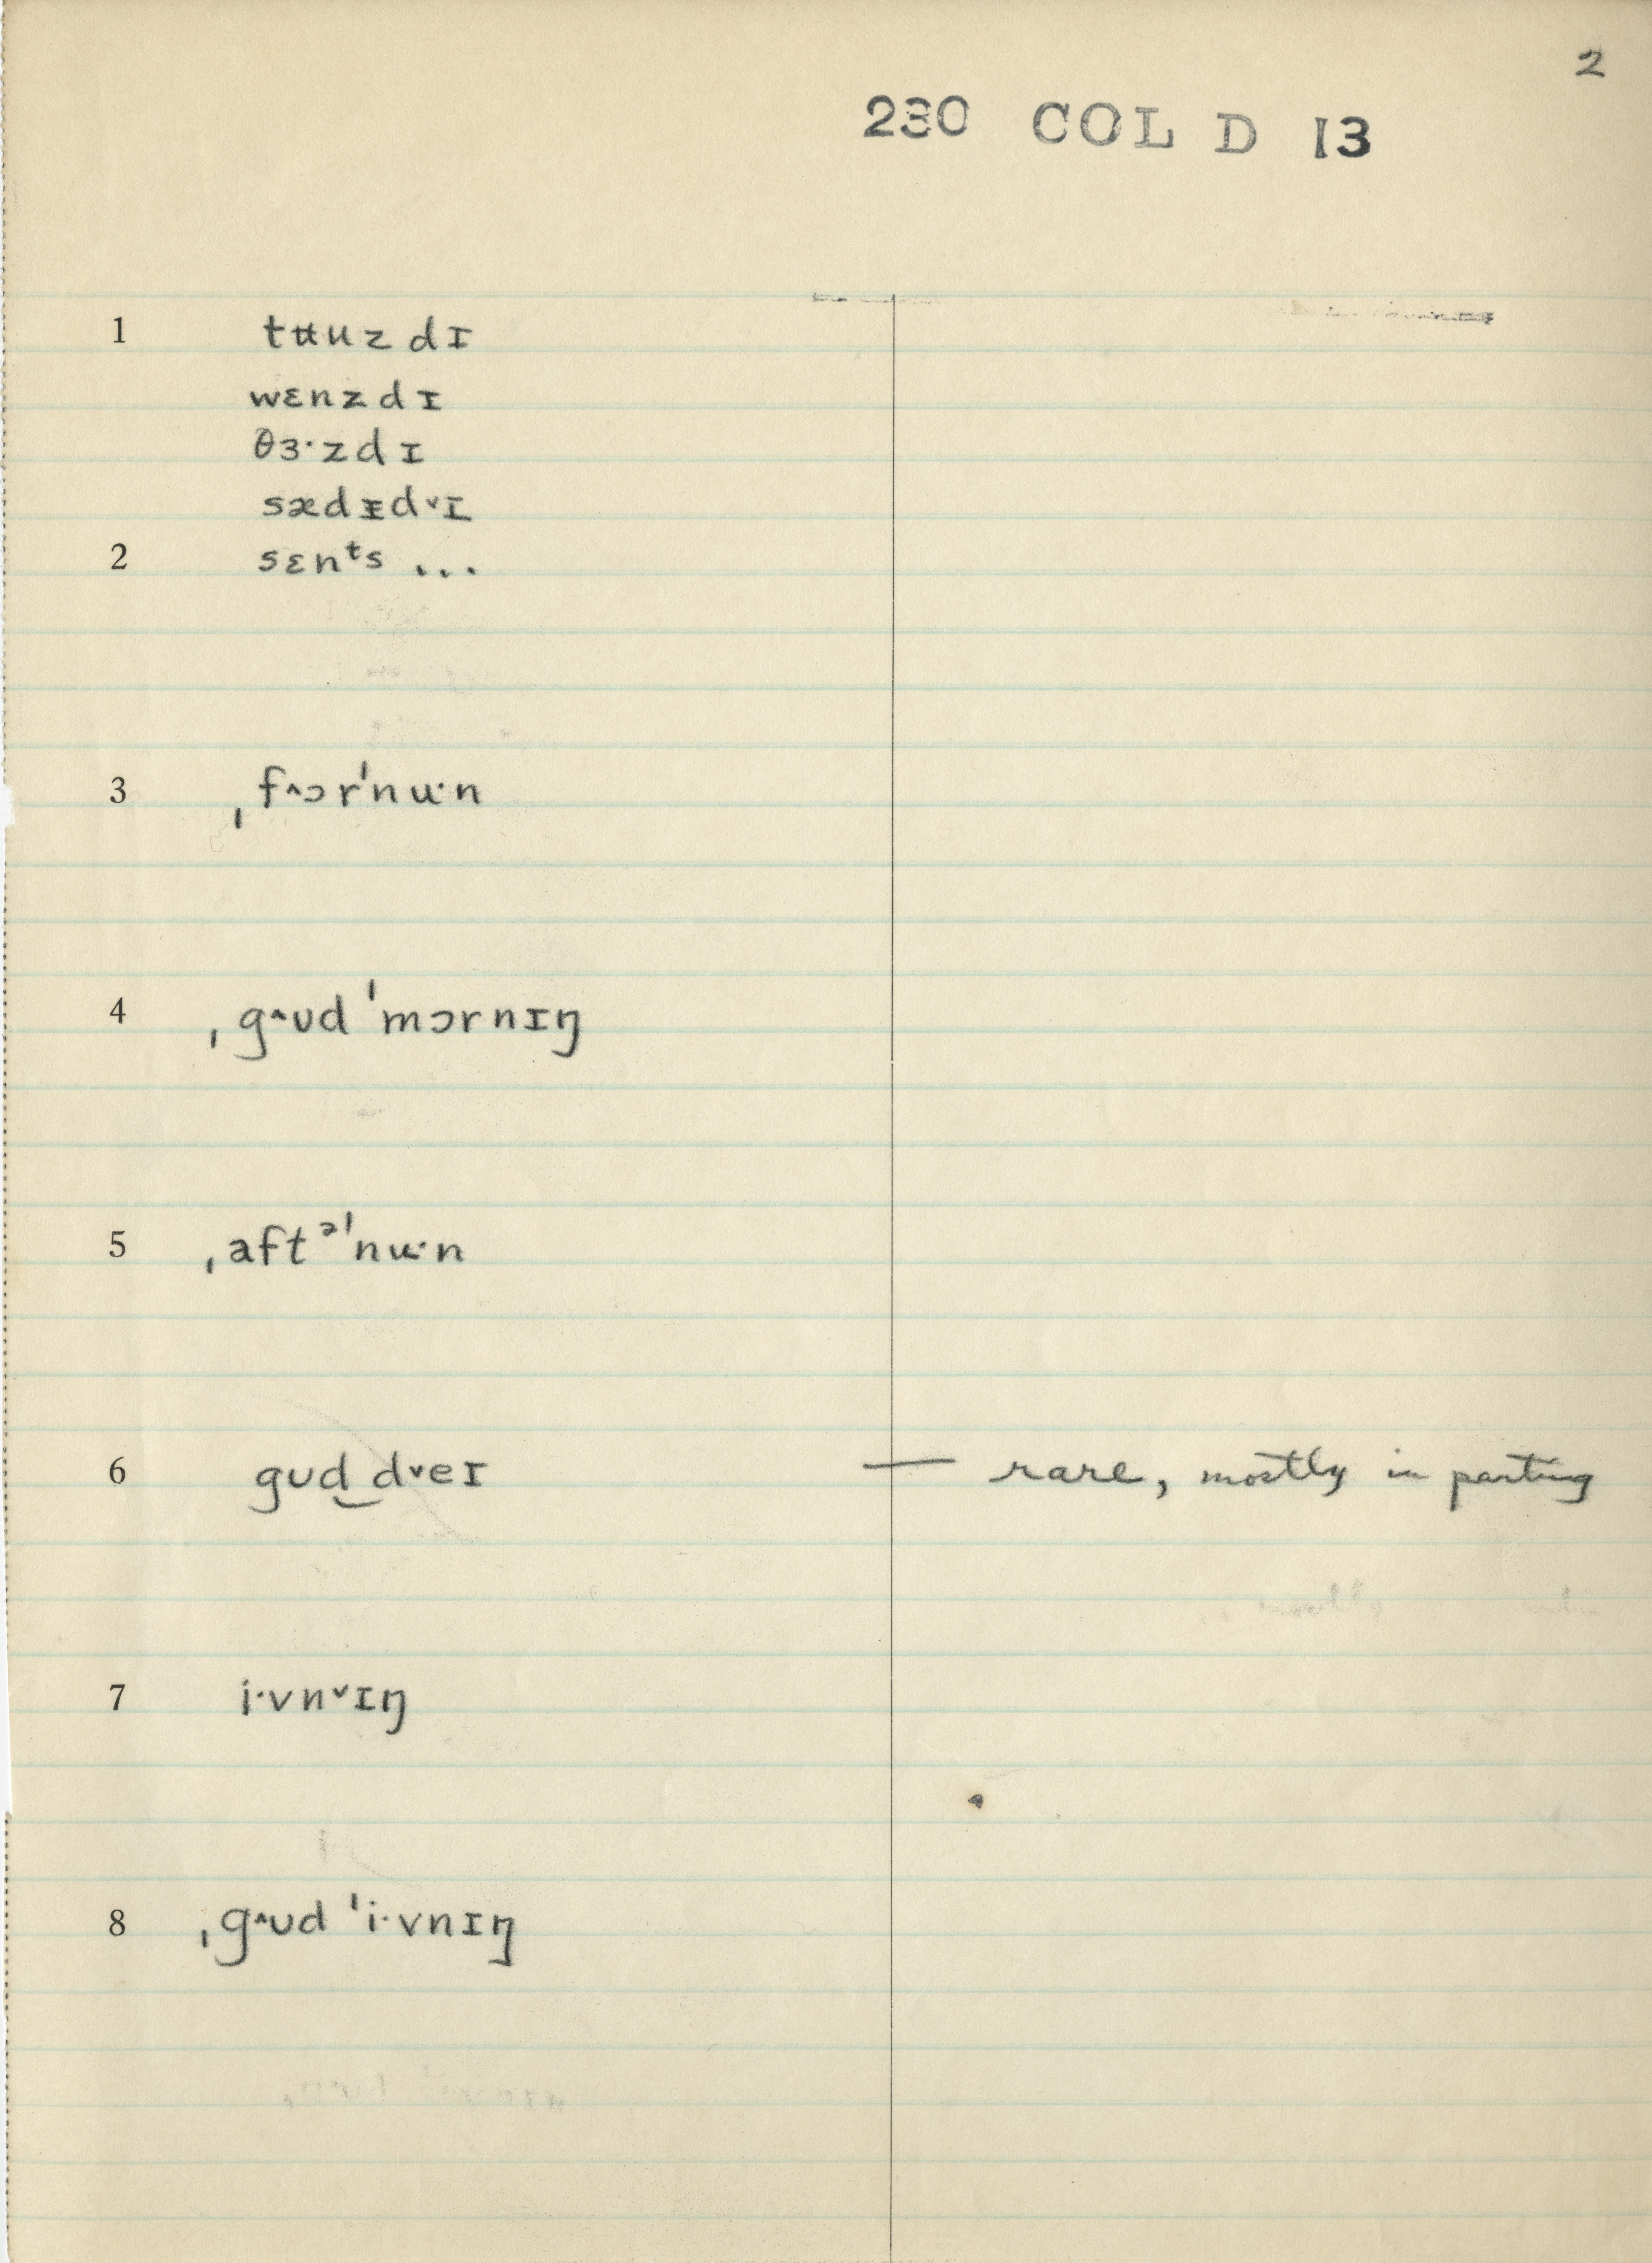 2
230 COL D 13
1 tʉuzdɪ
wɛnzdɪ
θɜ·zdɪ
sædᵻd˅ɪ
2 sɛnᵗs ...
3 ˌf˄ɔrˈnu·n
4 ˌg˄ʊd ˈmɔrnɪŋ
5 ˌaftᵊˈnu·n
6 gʊd‿d˅eɪ — rare, mostly in parting
7 i·vn˅ɪŋ
8 ˌg˄ʊd ˈi·vnɪŋ